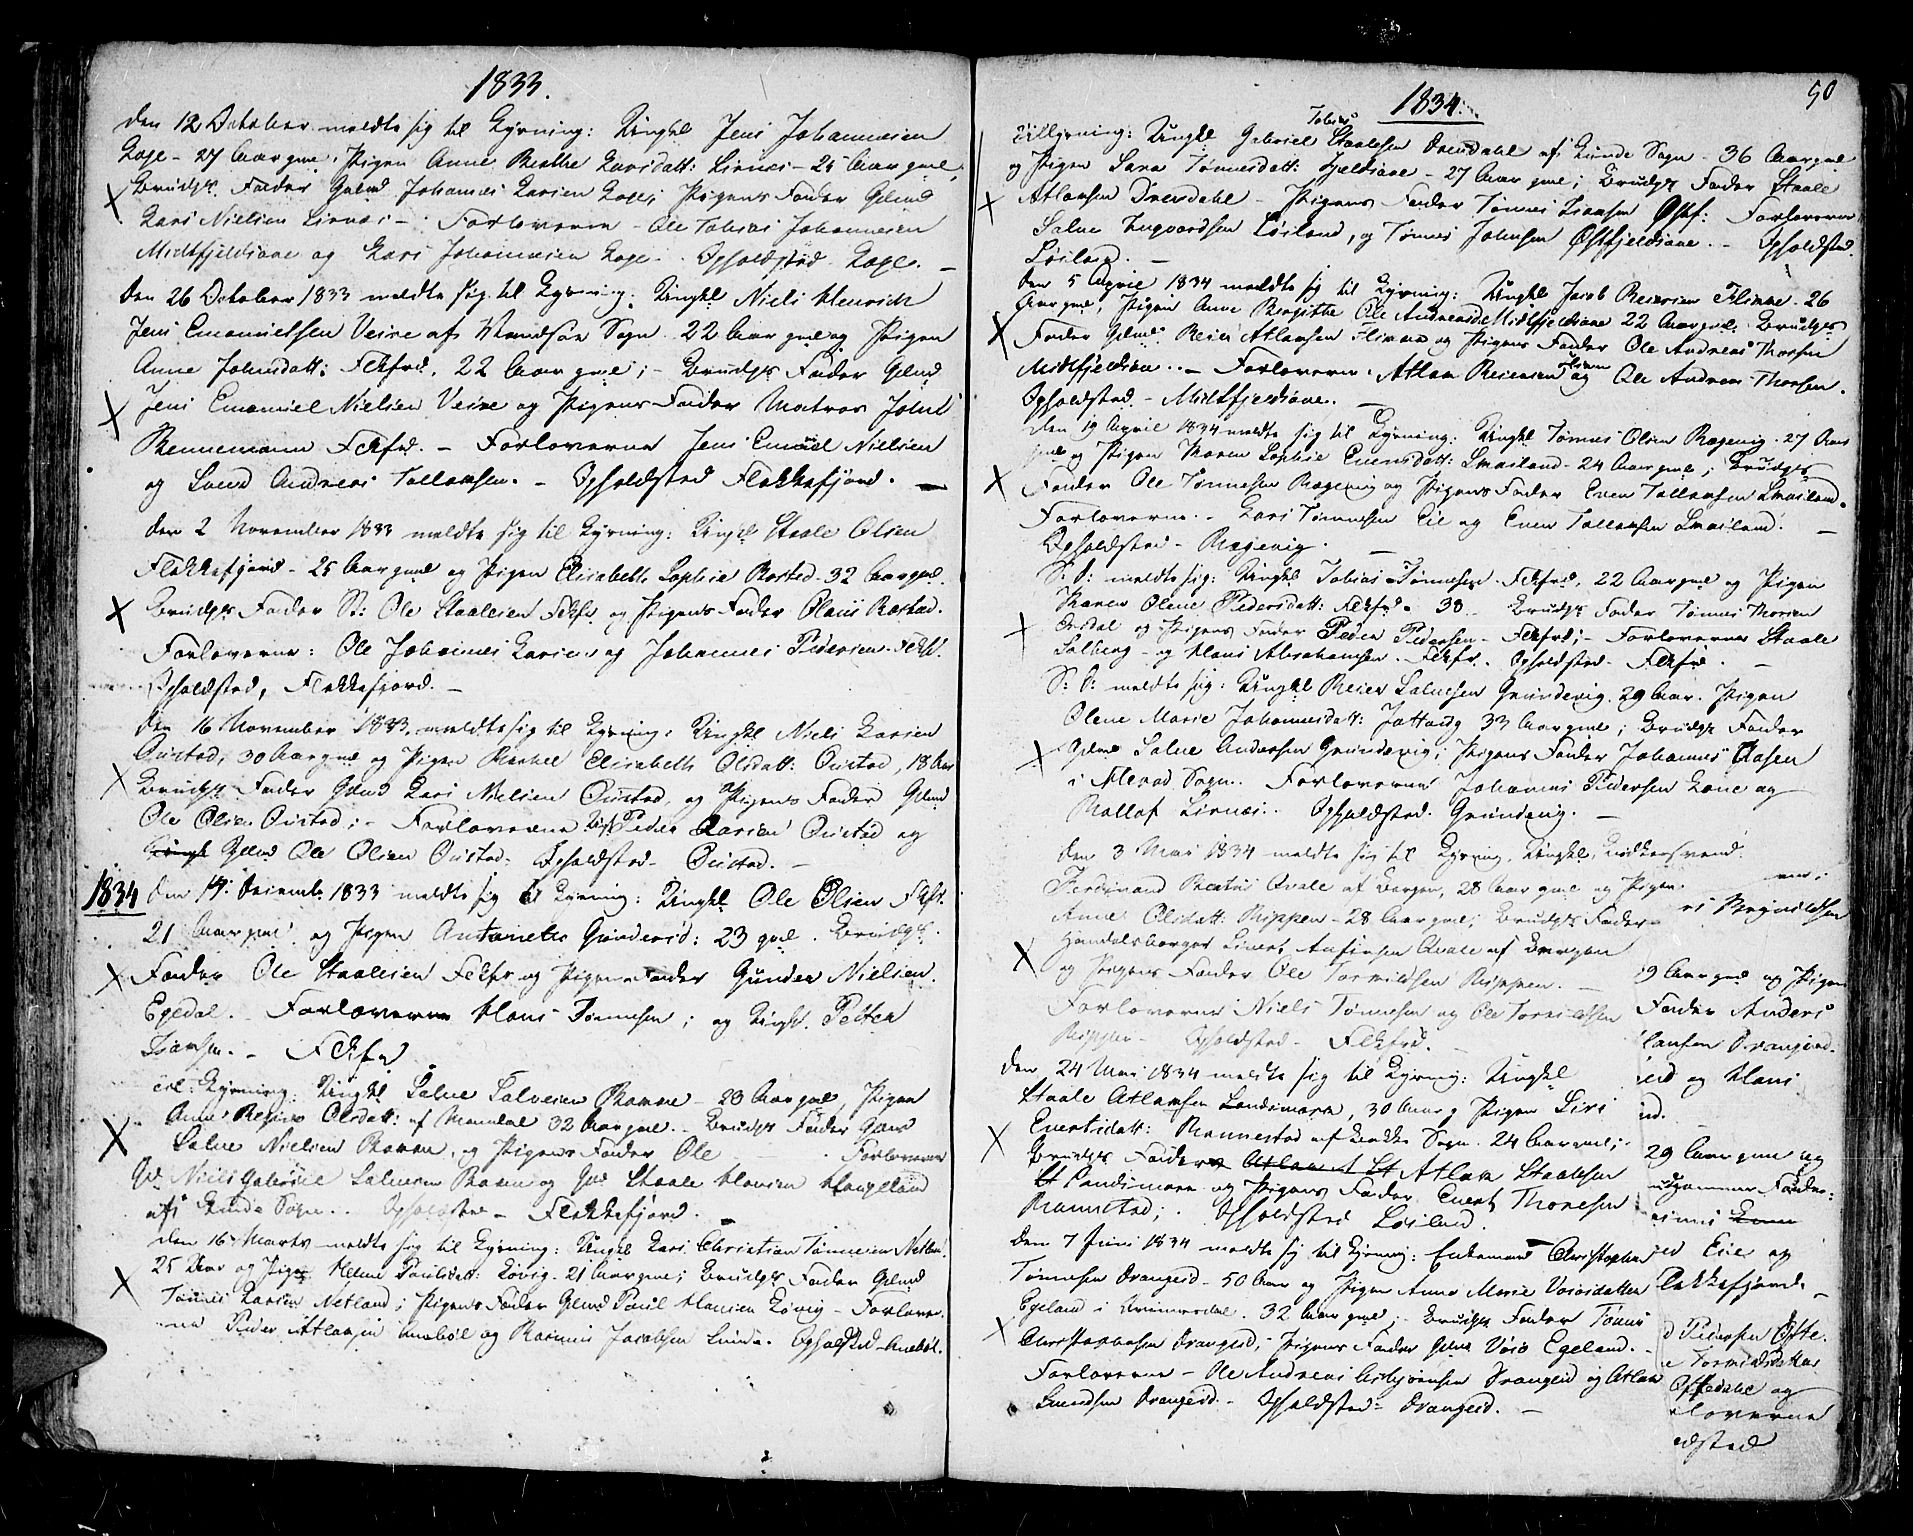 1833.
den 12 October meldte sig til Lysning: Ungkl Jens Johannesen
Loge - 27 Aar gml. Pigen Anne Berthe Larsdatt: Sirnes - 25 Aar gml
Brudgs Fader Gdmd Johannes Larsen Loge; Pigens Fader Gdmd
Lars Nielsen Sirnes - Forloverne - Ole Tobias Johannesen
Midtfjeldsaae og Lars Johannesen Loge - Opholdsted Loge. -
den 26 October 1833 meldte sig til Lysning: Ungkl Niels Henrich
Jens Emanuelsen Veire af Vandsøe Sogn 22 Aar gml og Pigen
Anne Johnsdatt: Fekfrd, 22 Aar gml; - Brudgs Fader Gdmd
Jens Emanuel Nielsen Veire og Pigens Fader Matros John
Bennemann Fekfrd. - Forloverne Jens Emauel Nielsen
og Svend Andreas Tollaksen. - Opholdsted Flekkefjord. -
den 2 November 1833 meldte sig til Lysning: Ungkl Staale Olsen
Flekkefjord - 25 Aar gml og Pigen Elisabeth Sophie Rostad - 32 Aar gml.
Brudgs Fader St: Ole Staalesen Fekfr og Pigens Fader Claus Rostad.
Forloverne: Ole Johannes Larsen og Johannes Pedersen Fekf.
Opholdsted, Flekkefjord. -
den 16 November 1833 meldte sig til Lysning: Ungkl Niels Larsen
Oustad, 30 Aar gml og Pigen Rachel Elisabeth Olsdatt: Oustad, 18 Aar
Brudgs Fader Gdmd Lars Nielsen Oustad, og Pigens Fader Gdmd
Ole Olsen Oustad; - Forloverne Ugk Peder Larsen Oustad og
Ungk Gdmd Ole Olsen Oustad. Opholdsted - Oustad. -
1834 den 14 Decembr 1833 meldte sig til Lysning: Ungkl Ole Olsen Fkfr.
21 Aar gml og Pigen Antonette Gundersd: 23 gml. Brudgs
Fader Ole Staalesen Fekfr og Pigens Fader Gunder Nielsen
Egedal. - Forloverne Hans Tønnesen; og Ungk. Petter
Isaksen. - Fekfr
til Lysning: Ungkl Salve Salvesen Ravne - 23 Aar gml, Pigen
Anne Regine Olsdatt: af Mandal 32 Aar gml. - Brudgs Fader Gdmd
Salve Nielsen Ravne, og Pigens Fader Ole - Forloverne
Gd. Niels Gabriel Salvesen Ravne og Gmd Staale Hansen Haugeland
afs Lunde Sogn. Opholdsted - Flekkefjord.
den 16 Marts meldte sig til Lysning: Ungkl Lars Christian Tønnesen Netland
25 Aar og Pige Helene Poulsdatt: Løvig - 21 Aar gml; Brudgs Fader Gdmd
Tønnes Larsen Netland; Pigens Fader Gdmd Poul Hansen Løvig - Forlover-
ne Peder Atlaksen Anebøl og Rasmus Jacobsen Sunde. Opholdsted - Anebøl.
50
1834.
Tobias
til Lysning: Ungkl Gabriel Staalesen Drendahl af Lunde Sogn - 36 Aar gml
og Pigen Sara Tønnesdatt: Fjeldsaae - 27 Aar gml; Brudgs Fader Staale
Atlaksen Drendahl - Pigens Fader Tønnes Isaksen Østf: Forloverne
Salve Ingvordsen Løiland, og Tønnes Johnsen Østfjeldsaae. - Opholdsted
Løiland. -
den 5 April 1834 meldte sig til Lysning: Ungkl Jacob Reiersen Flikke - 26
Aar gml, Pigen Anne Birgithe Ole Andreasd: Midtfjeldsaae 22 Aar gml. Brudgs
Fader Gdmd Reier Atlaksen Flikke og Pigens Fader Ole Andreas Thorsen
Midtfjeldsaae. - Forloverne. Atlak Reiersen og Ole Andreas Thorsen.
Opholdsted - Midtfjeldsaae. -
den 19 April 1834 meldte sig til Lysning: Ungkl Tønnes Olsen Rægevig - 27 Aar
gml og Pigen Maren Sophie Evensdatt: Smailand - 24 Aar gml; Brudgs
Fader Ole Tønnesen Rægevig og Pigens Fader Even Tollaksen Smailand.
Forloverne. - Lars Tønnesen Eie og Even Tollaksen Smailand. -
Opholdsted - Rægevig. -
S: D: meldte sig: Ungkl Tobias Tønnesen Fekfrd, 22 Aar gml og Pigen
Maren Olene Pedersdatt: Fekfrd - 30 - Brudgs Fader Tønnes Thorsen
og Pigens Fader Peder Pedersen - Fekfrd; - Forloverne Staale
Solberg - og Hans Abrahamsen - Fekfr. Opholdsted - Fekfrd. -
S: D: meldte sig: Ungkl Reier Salvesen Grundevig 29 Aar. Pigen
Olene Marie Johannesdatt: Jøttang 33 Aar gml; Brudgs Fader
Gdmd Salve Andersen Grundevig; Pigens Fader Johannes Aasen
i Nævad Sogn. Forloverne Johannes Pedersen Lone og
Rollof Sirnes. Opholdsted. Grundevig. -
den 3 Mai 1834 meldte sig til Lysning. Ungkl.
Ferdinand Beatus Qvale af Bergen, 28 Aar gml og Pigen
Anne Olsdatt: Rippen - 28 Aar gml; Brudgs Fader -
Handelsborger Sivert Anfinsen Qvale af Bergen
og Pigens Fader Ole Torkildsen Rippen. -
Forloverne Niels Tønnesen og Ole Torkildsen
Rippen - Opholdsted - Flekfrd. -
den 24 Mai 1834 meldte sig til Lysning: Ungkl
Staale Atlaksen Landsmark, 30 Aar og Pigen Siri
Evertsdatt: Rannestad af Bakke Sogn. 24 Aar gml;
Brudgs Fader Atlak St Atlak Staalesen
St Landsmark og Pigens Fader Evert Thoresen
Rannestad; - Opholdsted Løiland.
den 7 Juni 1834 meldte sig til Lysning: Enkemand Christopher
Tønnesen Drangeid - 50 Aar og Pigen Anne Marie Voiesdatter
Egeland i Qvinesdal. 32 Aar gml; Brudgs Fader Tønnes
Christophersen Drangeid; Pigens Fader Gdmd Voie Egeland. -
Forloverne - Ole Andreas Asbjørnsen Drangeid og Atlak
Svendsen Drangeid. - Opholdsted - Drangeid. -
rs Reynildsen
9 Aar gml og Pigen
Fader Anders
laksen Drangeid
eid og Hans
nd.
29 Aar gml og
udgommens Fader:
ed Eie og
lekkefjord. -
d Pedersen Ofte-
e Torkildsdatter
Oftedahl og
loverne
oldsted